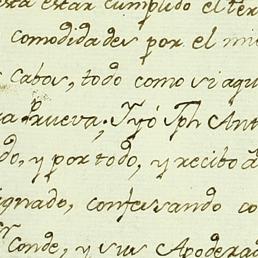 estar cumplido el ter
comodidades por el mi
cabos, todo como si aqu
prueva; Yyó Jph Ant
do, y por todo, y recibo a
ignado, confessando co
Conde, y sus Apodera